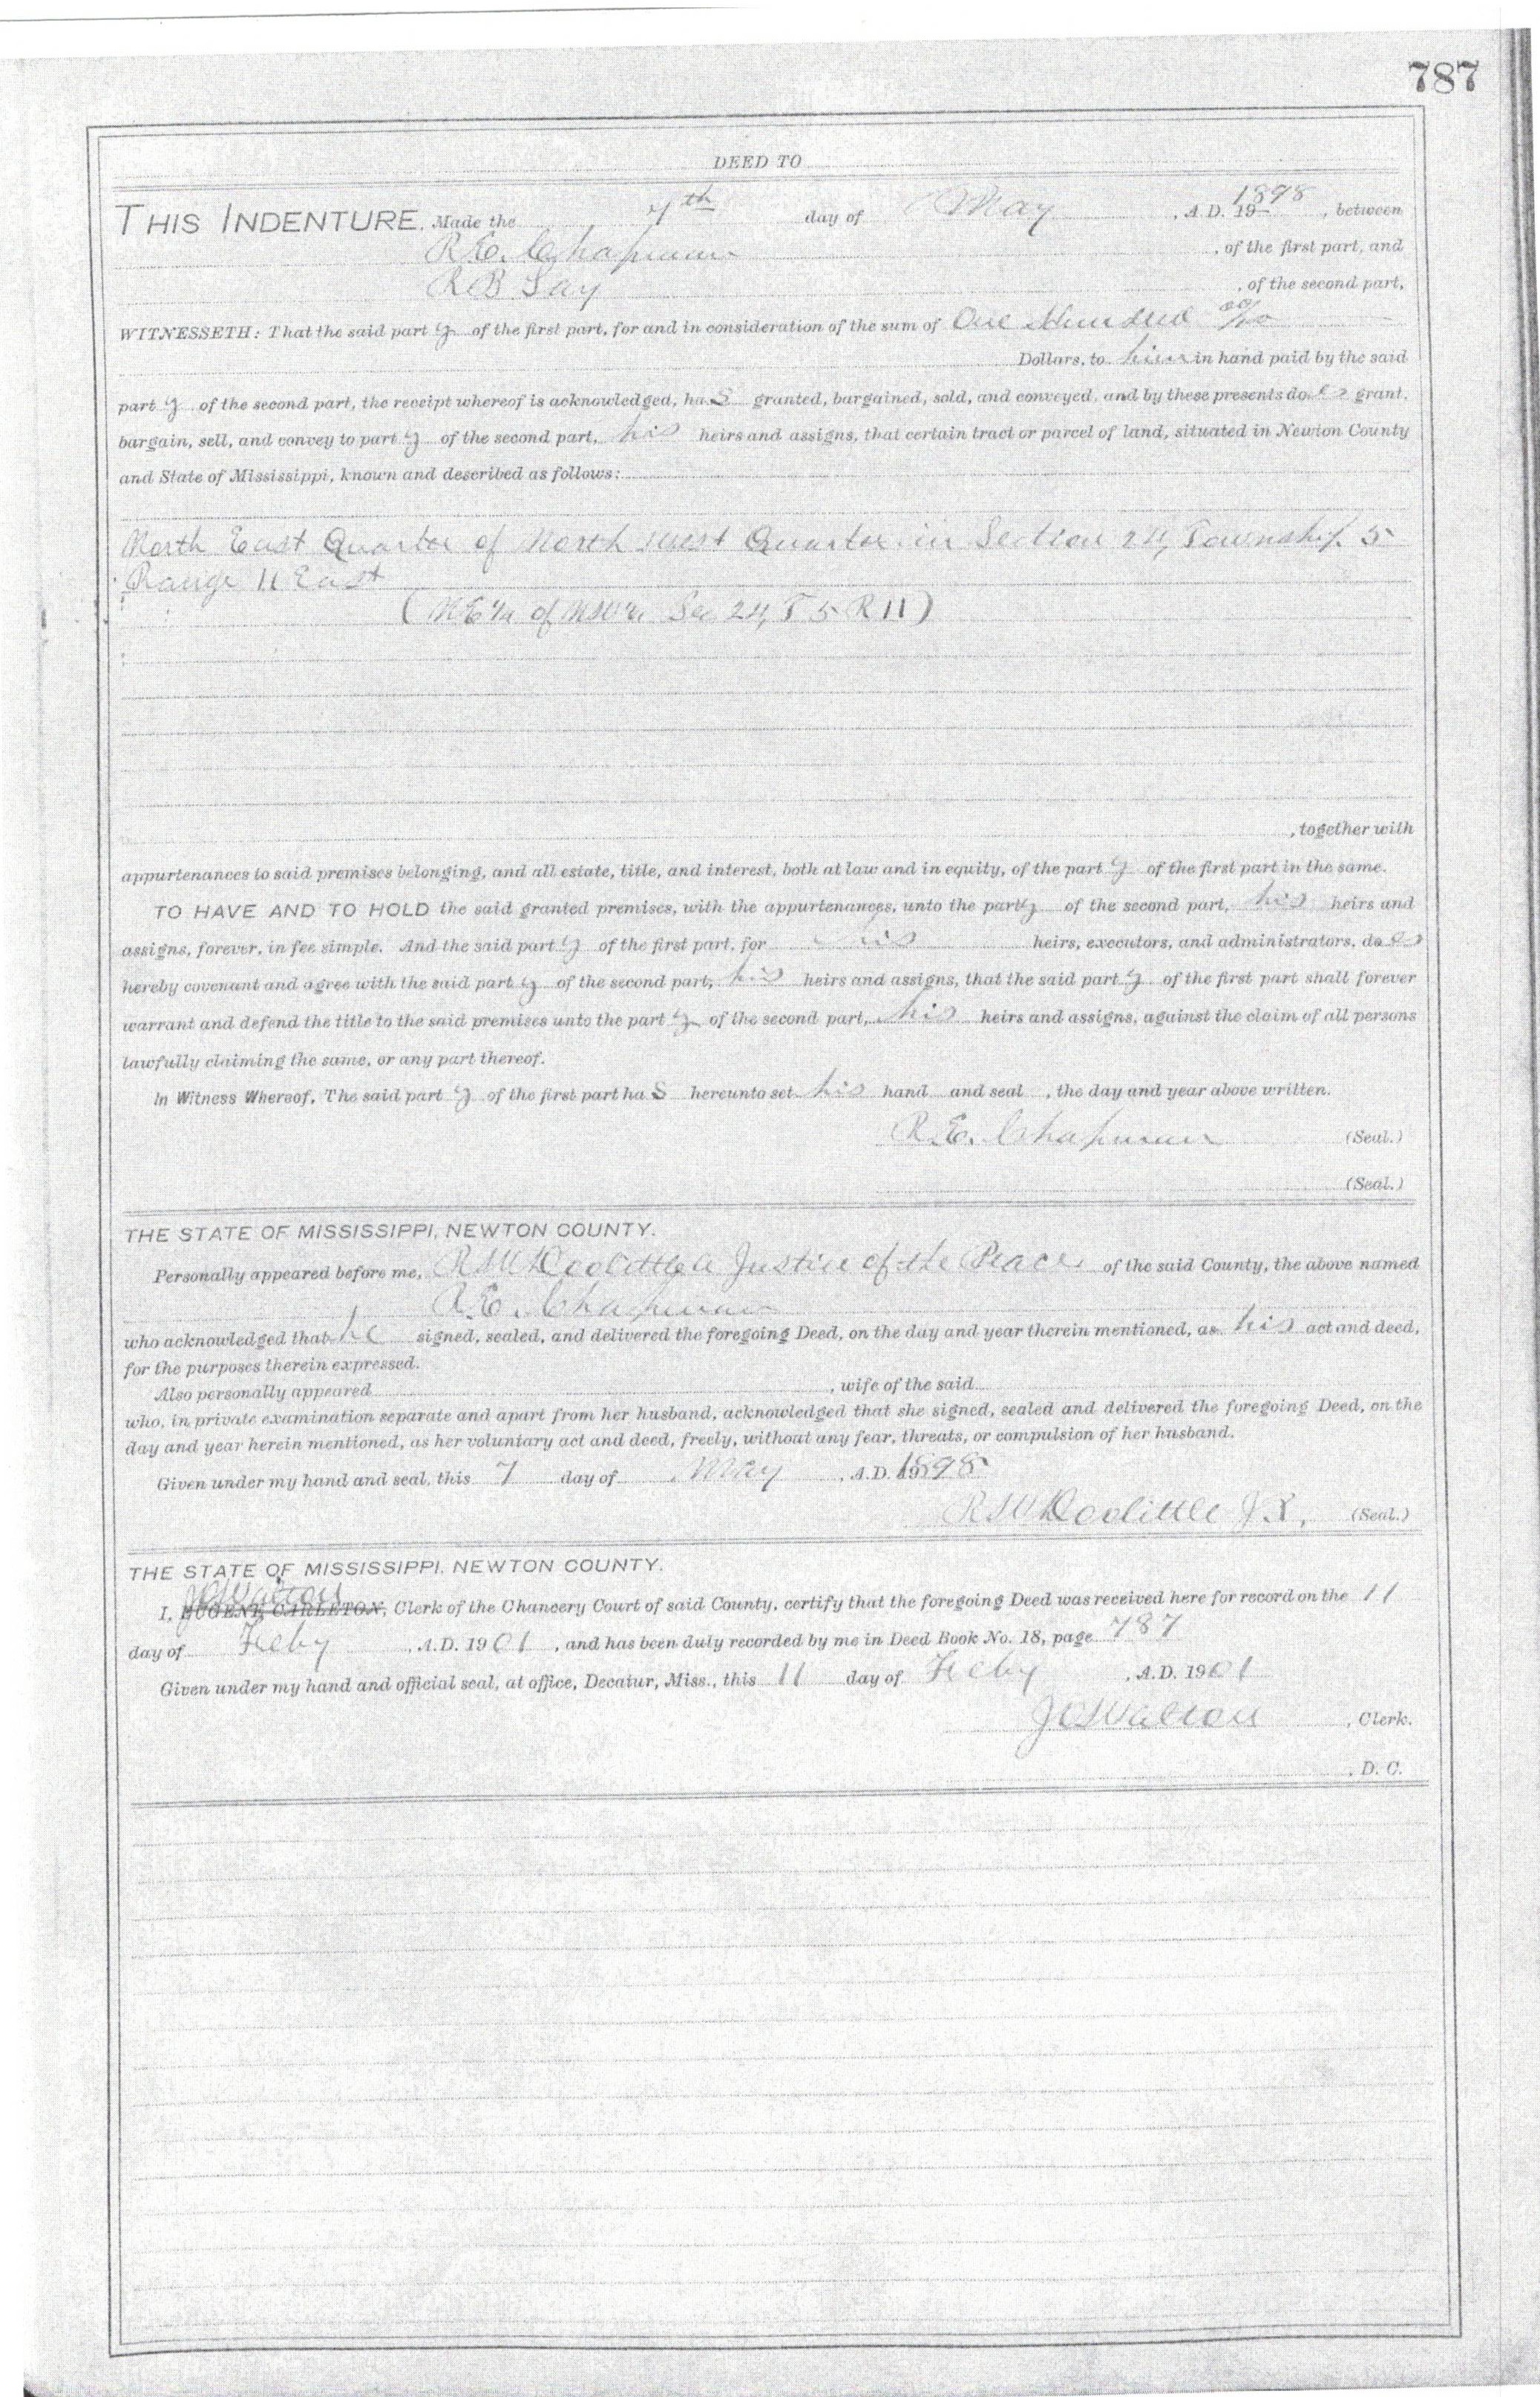 787
DEED TO
THIS INDENTURE, Made the 7th day of May, A.D. 19 1898, between
R.E. Chapman, of the first part, and
R B Gay, of the second part,
WITNESSETH: That the said party of the first part, for and in consideration of the sum of One Hundred 00/100
Dollars, to him in hand paid by the said
party of the second part, the receipt whereof is acknowledged, has granted, bargained, sold, and conveyed, and by these presents does grant,
bargain, sell, and convey to party of the second part, his heirs and assigns, that certain tract or parcel of land, situated in Newton County
and State of Mississippi, known and described as follows:
North East Quarter of North west Quarter in Section 24, Township 5
Range 11 East
(NE 1/4 of NW 1/4 Sec 24, T 5 R 11)
, together with
appurtenances to said premises belonging, and all estate, title, and interest, both at law and in equity, of the party of the first part in the same.
TO HAVE AND TO HOLD the said granted premises, with the appurtenances, unto the party of the second part, his heirs and
assigns, forever, in fee simple. And the said party of the first part, for his heirs, executors, and administrators, does
hereby covenant and agree with the said party of the second part, his heirs and assigns, that the said party of the first part shall forever
warrant and defend the title to the said premises unto the party of the second part, his heirs and assigns, against the claim of all persons
lawfully claiming the same, or any part thereof.
In Witness Whereof, The said party of the first part has hereunto set his hand and seal, the day and year above written.
R.E. Chapman (Seal.)
(Seal.)
THE STATE OF MISSISSIPPI, NEWTON COUNTY.
Personally appeared before me, R W Doolittle a Justice of the Peace of the said County, the above named
R.E. Chapman
who acknowledged that he signed, sealed, and delivered the foregoing Deed, on the day and year therein mentioned, as his act and deed,
for the purposes therein expressed.
Also personally appeared, wife of the said
who, in private examination separate and apart from her husband, acknowledged that she signed, sealed and delivered the foregoing Deed, on the
day and year herein mentioned, as her voluntary act and deed, freely, without any fear, threats, or compulsion of her husband.
Given under my hand and seal, this 7 day of May, A.D. 1898
R W Doolittle J.P. (Seal.)
THE STATE OF MISSISSIPPI, NEWTON COUNTY.
J C Walton
I, EUGENE CARLETON, Clerk of the Chancery Court of said County, certify that the foregoing Deed was received here for record on the 11
day of Feby, A.D. 1901, and has been duly recorded by me in Deed Book No. 18, page 787
Given under my hand and official seal, at office, Decatur, Miss., this 11 day of Feby, A.D. 1901
J C Walton, Clerk.
, D. C.